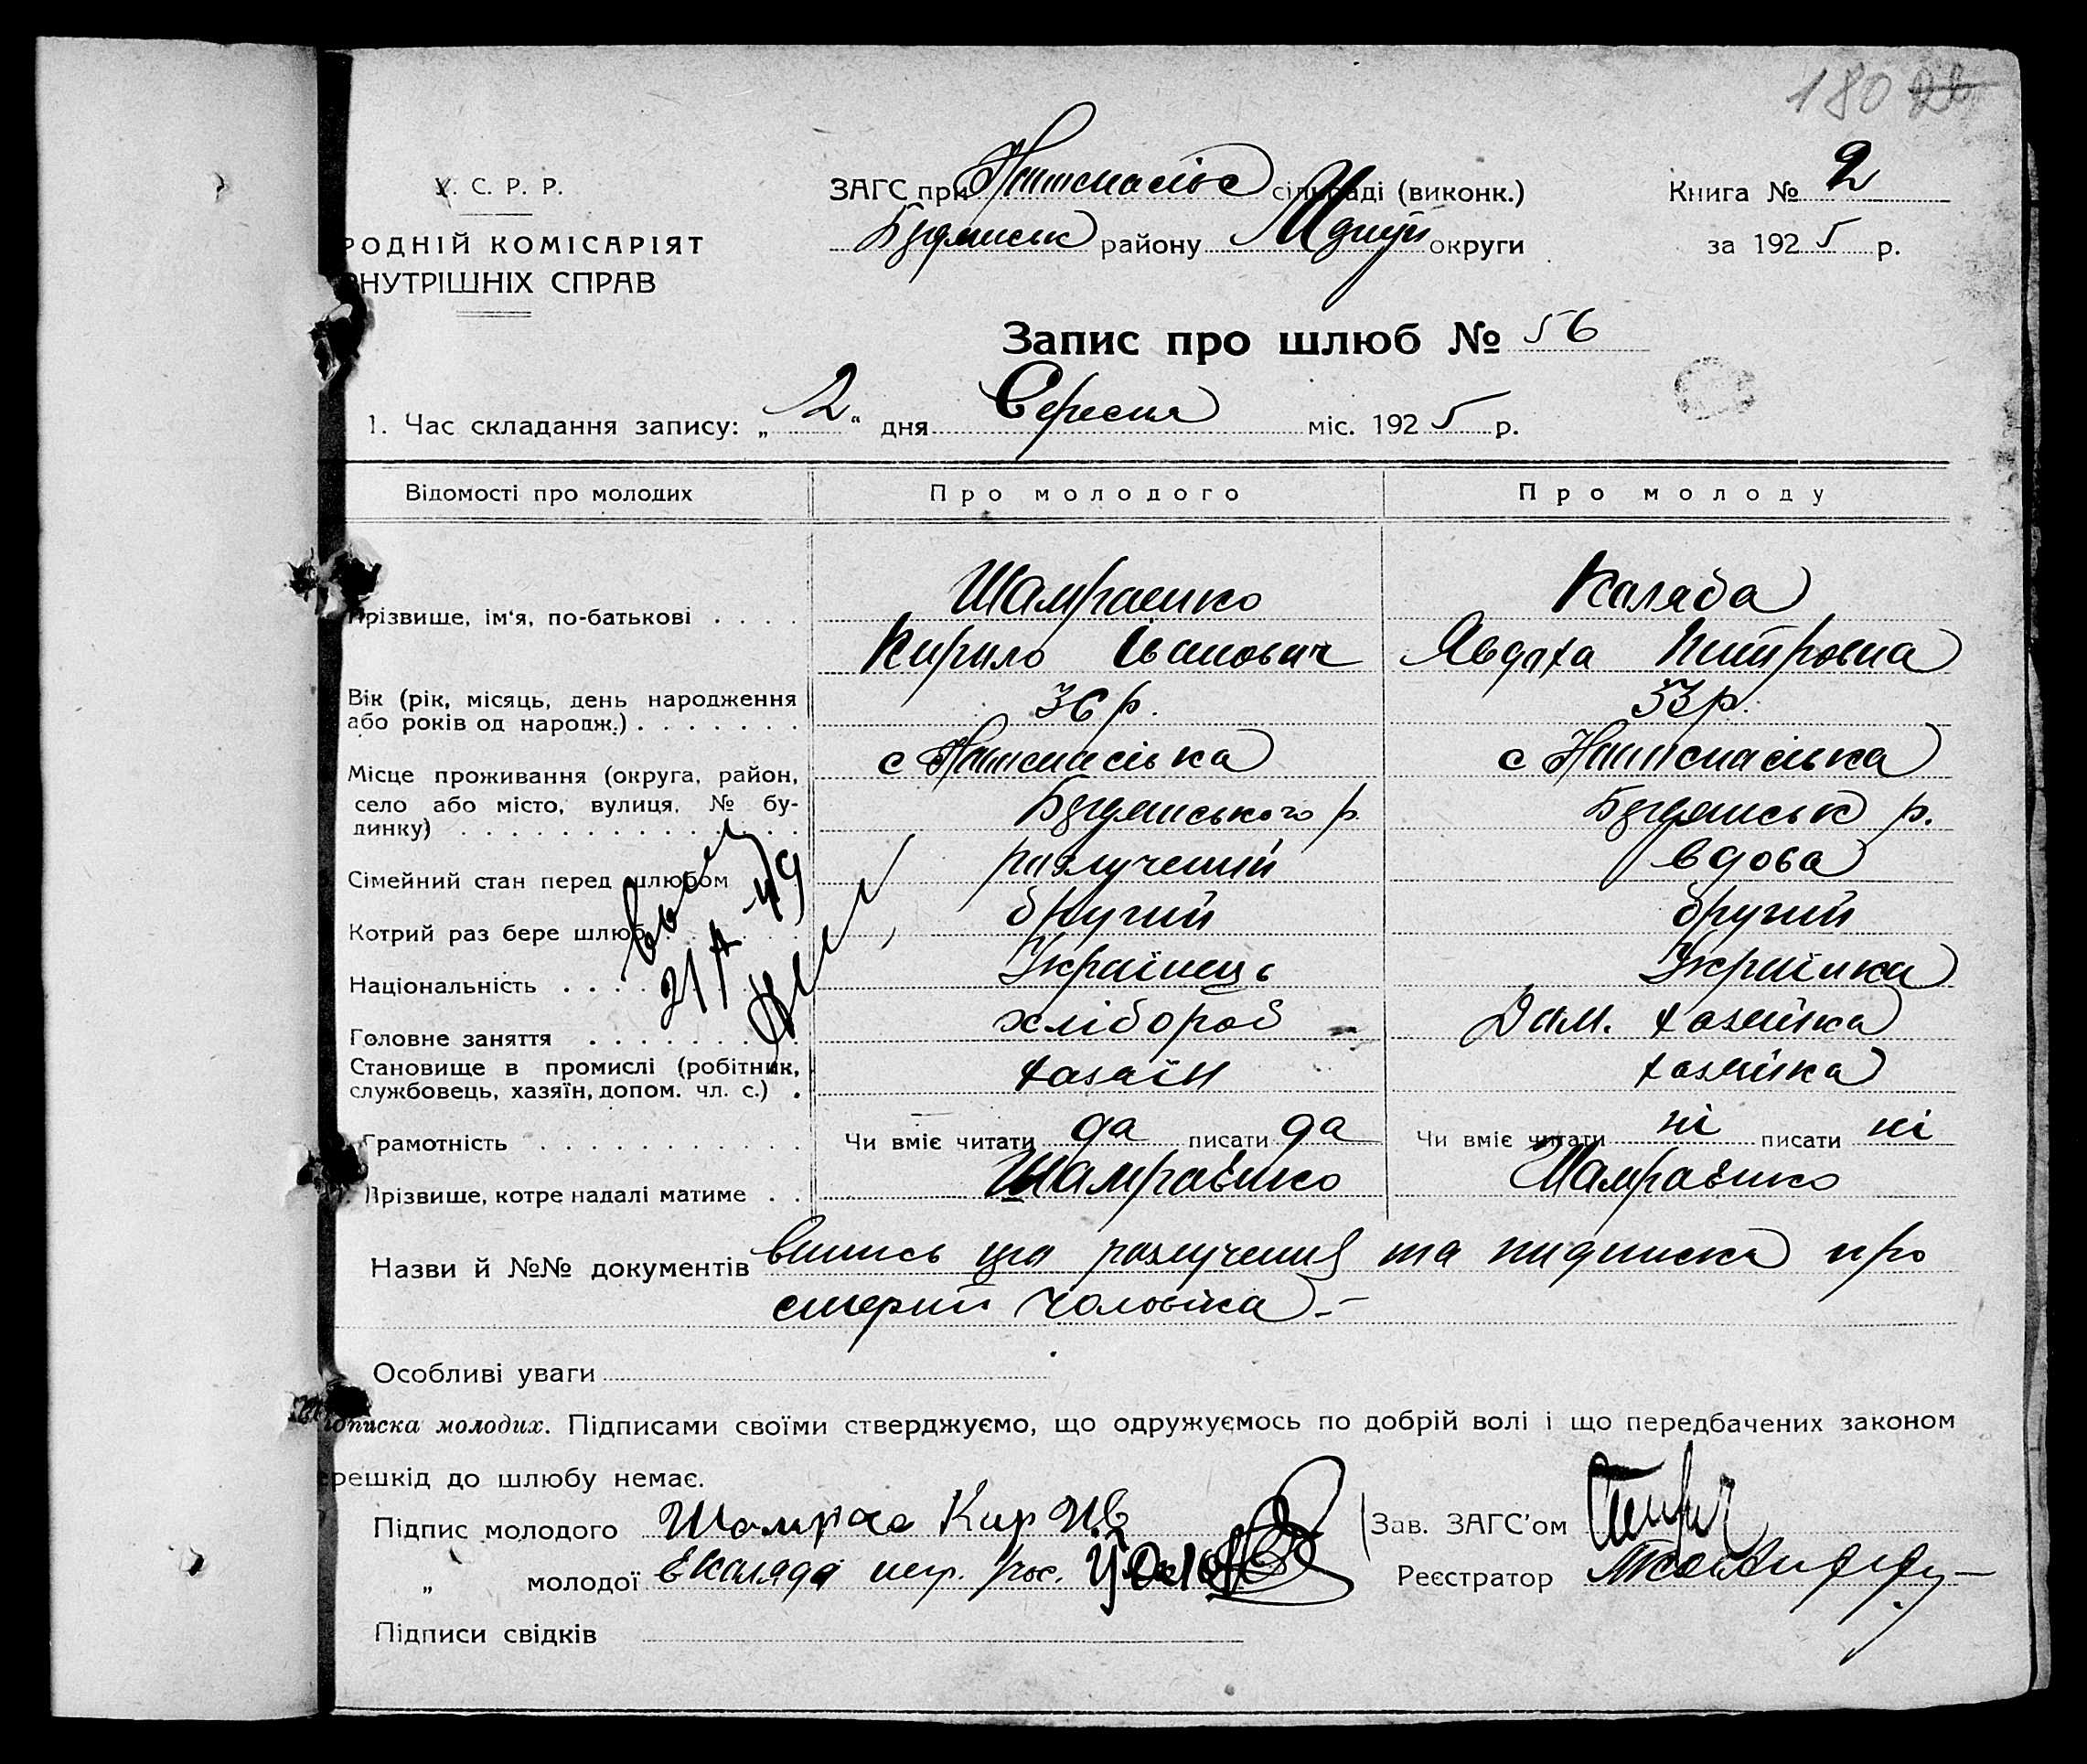 180 26
У. С. Р. Р.
РОДНІЙ КОМІСАРІЯТ
ВНУТРІШНІХ СПРАВ
ЗАГС при сільраді (виконк.)
району округи
Книга № 2
за 1925 р.
Запис про шлюб № 56
1. Час складання запису: „2“ дня Вересня міс. 1925 р.
Відомості про молодих Про молодого Про молоду
Прізвище, ім'я, по-батькові . . . . Шамраенко Каляда
Кирило Іванович Явдоха Питровна
Вік (рік, місяць, день народження
або років од народж.) . . . . . . . 36 р. 33 р.
Місце проживання (округа, район,
село або місто, вулиця, № бу-
динку) . . . . . . . . . . . . . р. р.
Сімейний стан перед шлюбом разлучений вдова
Котрий раз бере шлюб . . . . . . другий другий
Національність . . . . . . Українець Українка
Головне заняття . . . . . . . . хлібороб Дом. хозяйка
Становище в промислі (робітник,
службовець, хазяїн, допом. чл. с.) . хазаїн хозяйка
Грамотність . . . . . . . . . . . Чи вміє читати да писати да Чи вміє читати ні писати ні
Прізвище, котре надалі матиме . . Шамраєнко Шамраєнко
Назви й №№ документів разлучения та пидписка про
смерть чоловіка. –
Особливі уваги
ідписка молодих. Підписами своїми стверджуємо, що одружуємось по добрій волі і що передбачених законом
ерешкід до шлюбу немає.
Підпис молодого Кир Ив Зав. ЗАГС'ом
„ молодої Каляда Реєстратор
Підписи свідків